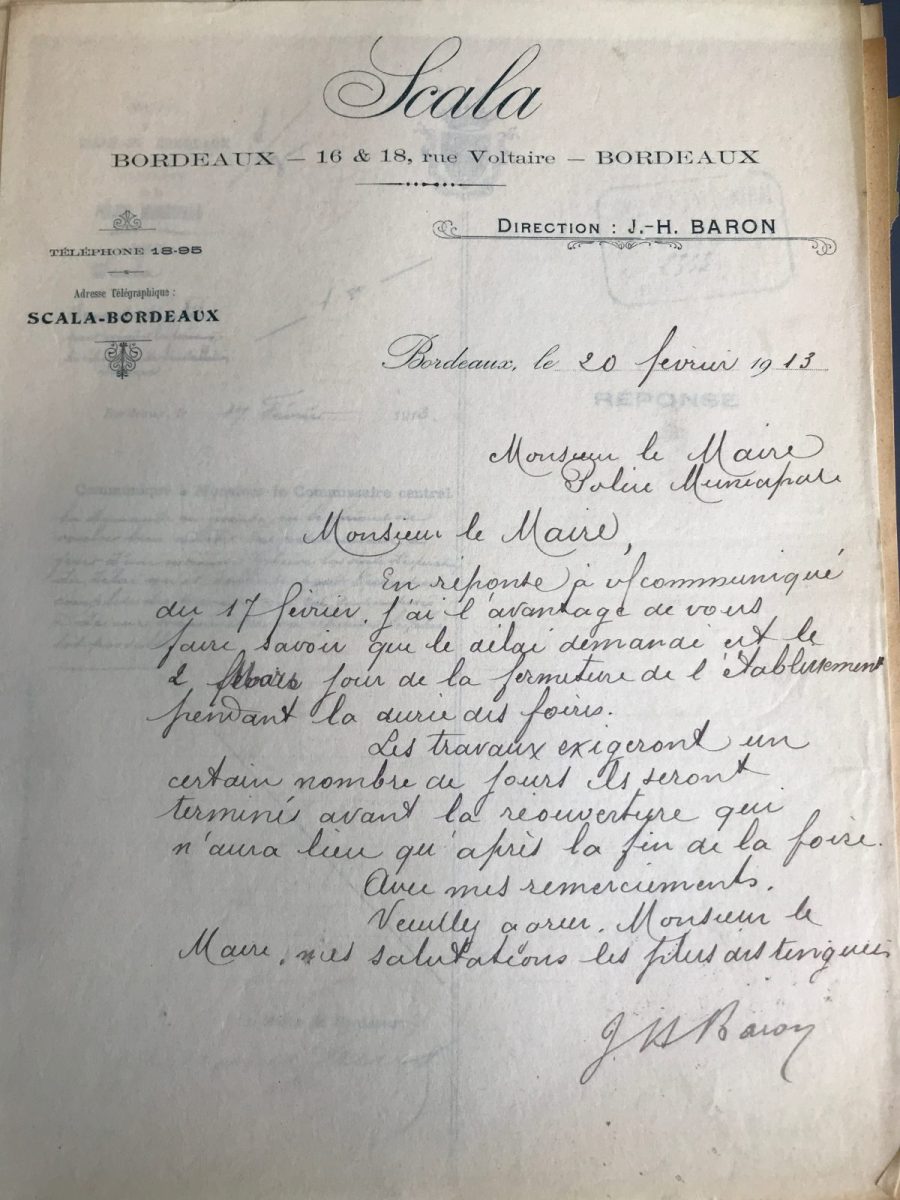 Scala
BORDEAUX – 16 & 18, rue Voltaire – BORDEAUX
DIRECTION : J.-H. BARON
TÉLÉPHONE 18-95
Adresse Télégraphique :
SCALA-BORDEAUX
Bordeaux, le 20 février 1913
RÉPONSE
Monsieur le Maire
Police Municipale
Monsieur le Maire,
En réponse à v/communiqué
du 17 février, j'ai l'avantage de vous
faire savoir que le délai demandé est le
2 Mars jour de la fermeture de l'établissement
pendant la durée des foires.
Les travaux exigeront un
certain nombre de jours ils seront
terminé avant la réouverture qui
n'aura lieu qu'après la fin de la foire.
Avec mes remerciements.
Veuillez agréer, Monsieur le
Maire, mes salutations les plus distinguées
J H Baron
Communiqué à Monsieur le Commissaire central